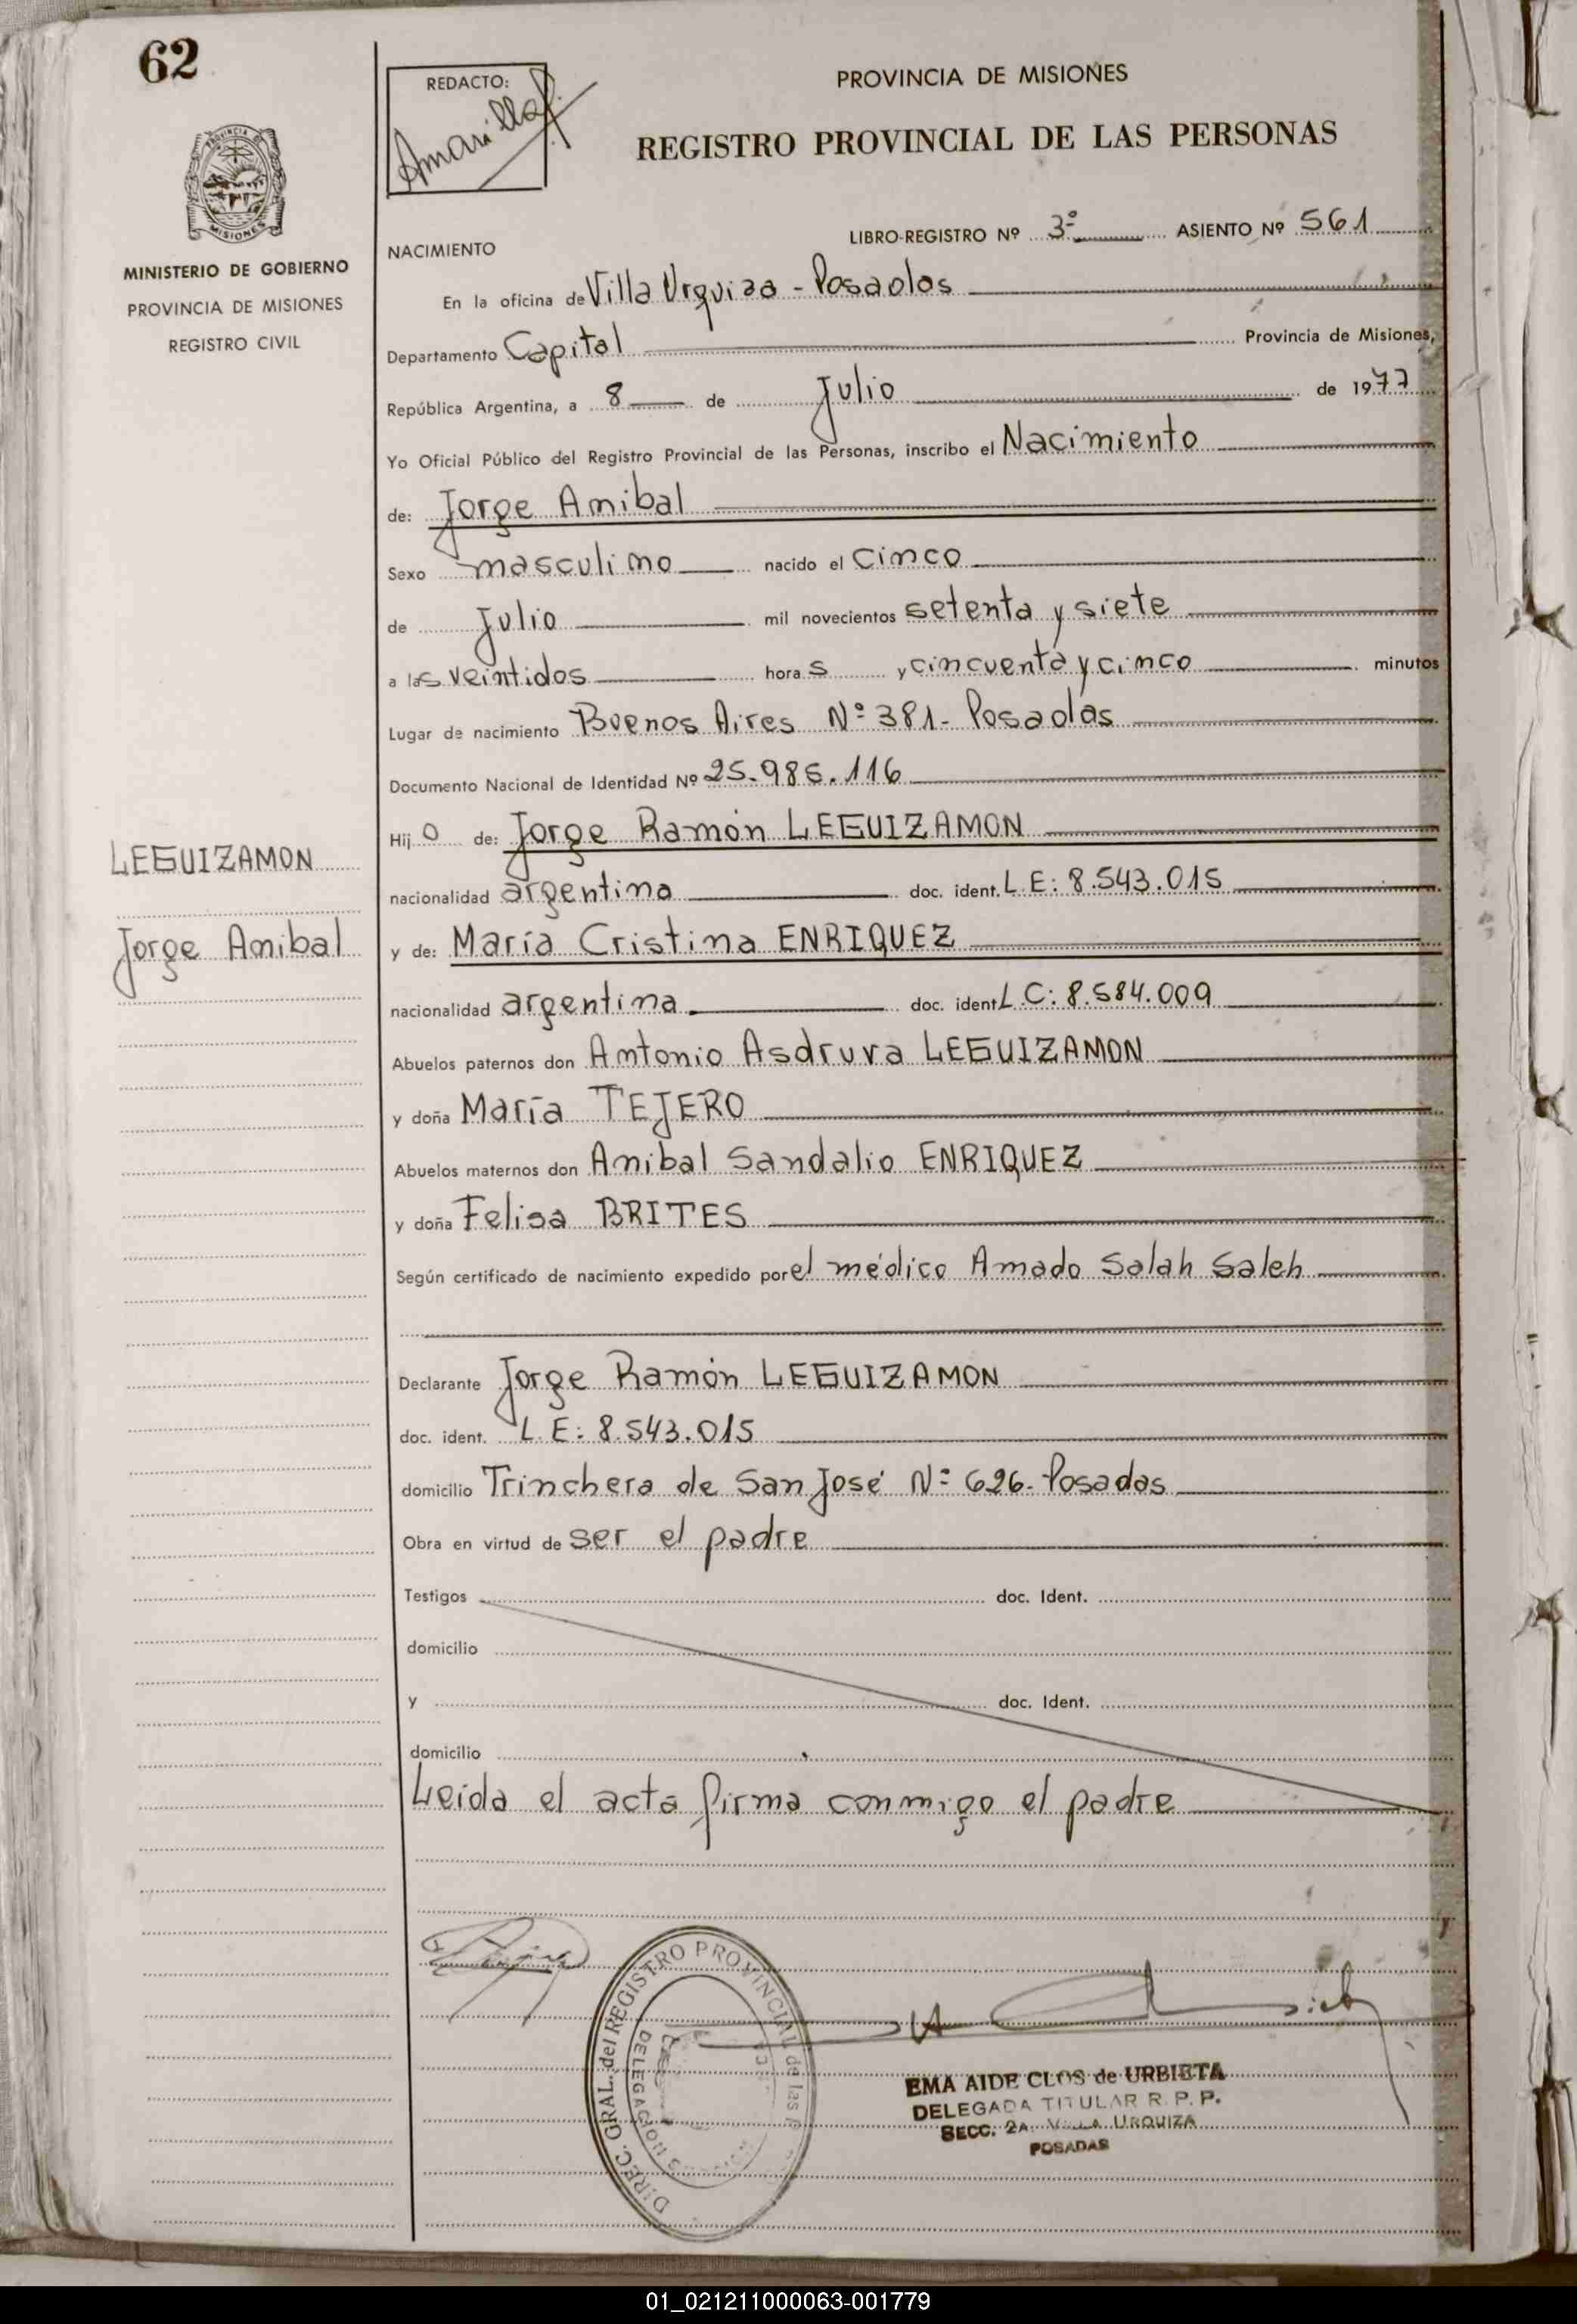 62
REDACTO:
Amarilla
PROVINCIA DE MISIONES
REGISTRO PROVINCIAL DE LAS PERSONAS
PROVINCIA
MISIONES
MINISTERIO DE GOBIERNO
PROVINCIA DE MISIONES
REGISTRO CIVIL
LIBRO-REGISTRO Nº 3º ASIENTO Nº 561
NACIMIENTO
En la oficina de Villa Urquiza - Posadas
Departamento Capital Provincia de Misiones,
República Argentina, a 8 de Julio de 1977
Yo Oficial Público del Registro Provincial de las Personas, inscribo el Nacimiento
de: Jorge Anibal
Sexo masculino nacido el cinco
de Julio mil novecientos setenta y siete
a las veintidos horas y cincuenta y cinco minutos
Lugar de nacimiento Buenos Aires Nº 381- Posadas
Documento Nacional de Identidad Nº 25.985.116
Hijo de: Jorge Ramón LEGUIZAMON
LEGUIZAMON
nacionalidad argentina doc. ident. L.E: 8.543.015
Jorge Anibal
y de: María Cristina ENRIQUEZ
nacionalidad argentina doc. ident L.C: 8.584.009
Abuelos paternos don Antonio Asdruva LEGUIZAMON
y doña María TEJERO
Abuelos maternos don Anibal Sandalio ENRIQUEZ
y doña Felisa BRITES
Según certificado de nacimiento expedido por el médico Amado Salah Saleh
Declarante Jorge Ramón LEGUIZAMON
doc. ident. L.E: 8.543.015
domicilio Trinchera de San José Nº 626- Posadas
Obra en virtud de ser el padre
Testigos doc. Ident.
domicilio
y doc. Ident.
domicilio
Leida el acta firma conmigo el padre
DIREC. GRAL. del REGISTRO PROVINCIAL de las P
DELEGACION
EMA AIDE CLOS de URBIETA
DELEGADA TITULAR R. P. P.
SECC. 2A. VILLA URQUIZA
POSADAS
01_021211000063-001779